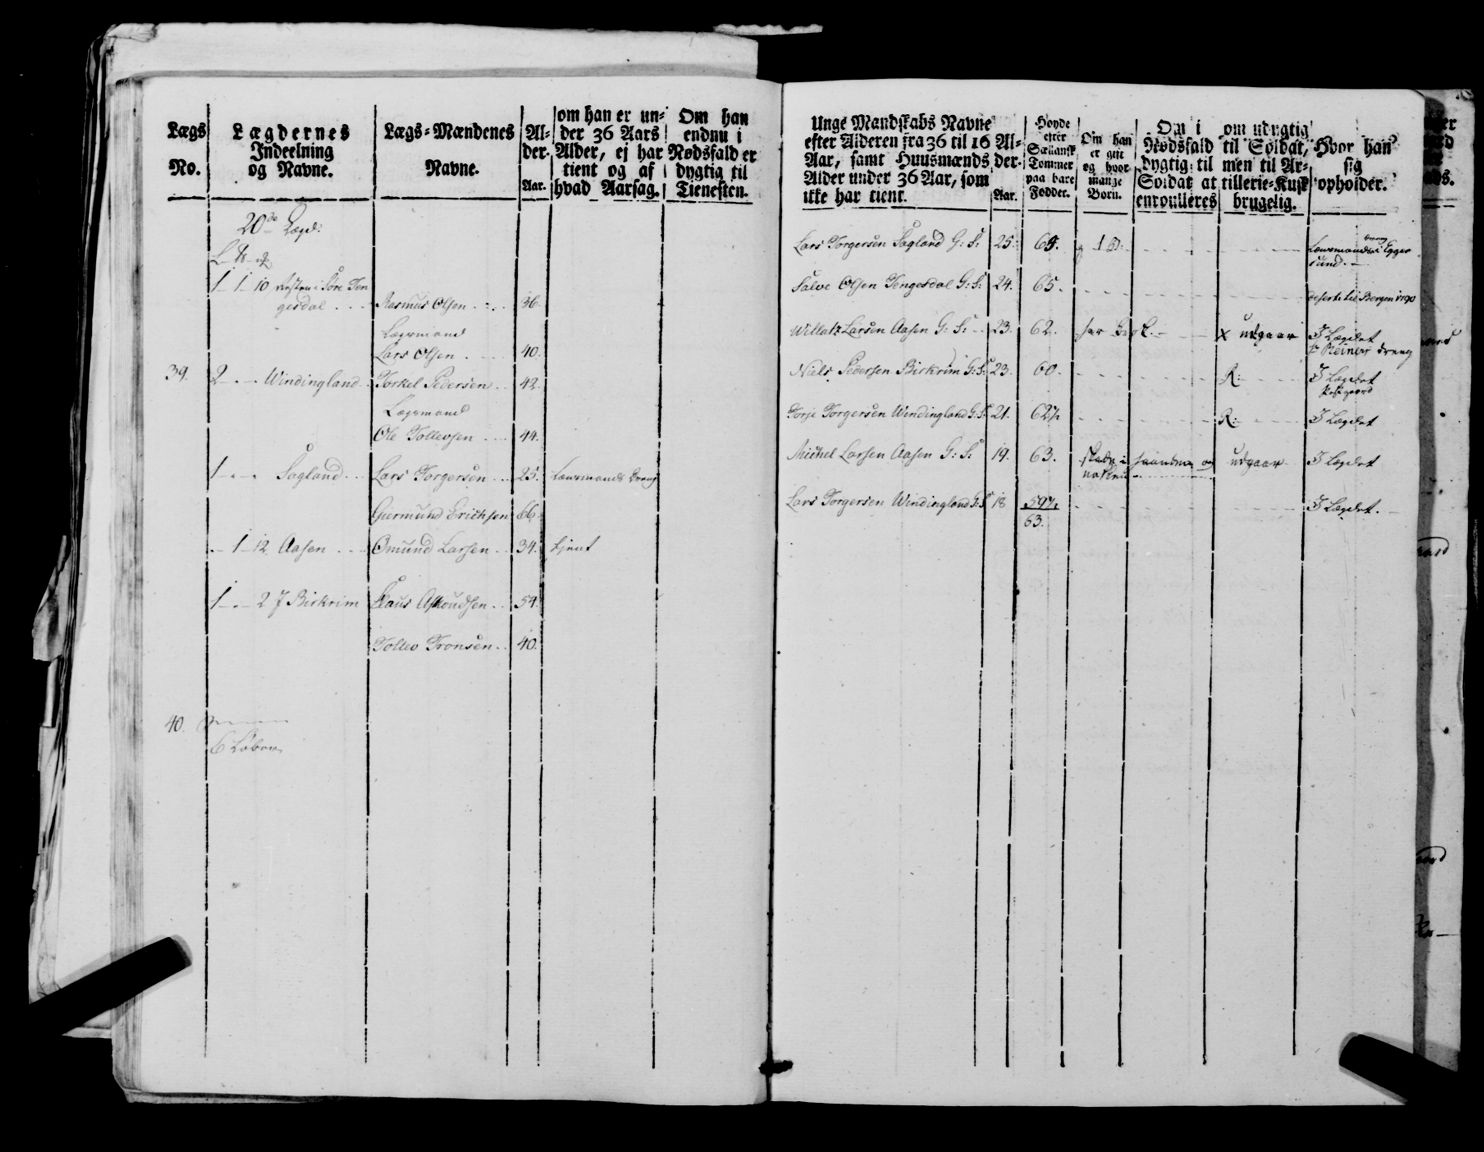 Lægs No.
Lægdernes Indeelning og Navne.
Lægs-Mændenes Navne.
Al-der. Aar.
om han er un-der 36 Aars Alder, ej har tient og af hvad Aarsag.
Om han endnu i Nødsfald er dygtig til Tienesten.
20de Lægd:
1 1 10
gesdal
Rasmus Olsen 36.
Lægsmand
Lars Olsen 40.
39. 2 Windingland Torkel Pedersen 42.
Lægsmand
Ole Tollevsen 44.
1 Sagland Lars Torgersen 25. Lænsmands Dreng
Giermund Erichsen 66.
1 12 Aasen Omund Larsen 34. tjent
1 2 Birkrim Claus Asmundsen 54.
Tollev Tronsen 40.
40.
Unge Mandskabs Navne efter Alderen fra 36 til 16 Aar, samt Huusmænds Alder under 36 Aar, som ikke har tient.
Al-der. Aar.
Høyde efter Siællansk Tommer paa bare Fødder.
Om han er gift og hvor mange Børn.
Om i Nødsfald dygtig til Soldat at enroulleres
om udygtig til Soldat, men til Ar-tillerie-Kusk brugelig.
Hvor han sig opholder.
Lars Torgersen Sagland G: S: 25. 1 B. Lænsmands Dreng i Egger
sund.
Salve Olsen Tengesdal G: S: 24. 65. til Bergen 1790
Willatz Larsen Aasen G: S: 23. 62. x udgaar I Lægdet
Dreng
Niels Pedersen Birkrim G: S: 23. 60. R: I Lægdet
Torje Torgersen Windingland G: S: 21. 62½ R: I Lægdet
Michel Larsen Aasen G: S: 19. 63. og udgaar I Lægdet
Lars Torgersen Windingland G: S: 18 59½ I Lægdet.
63.